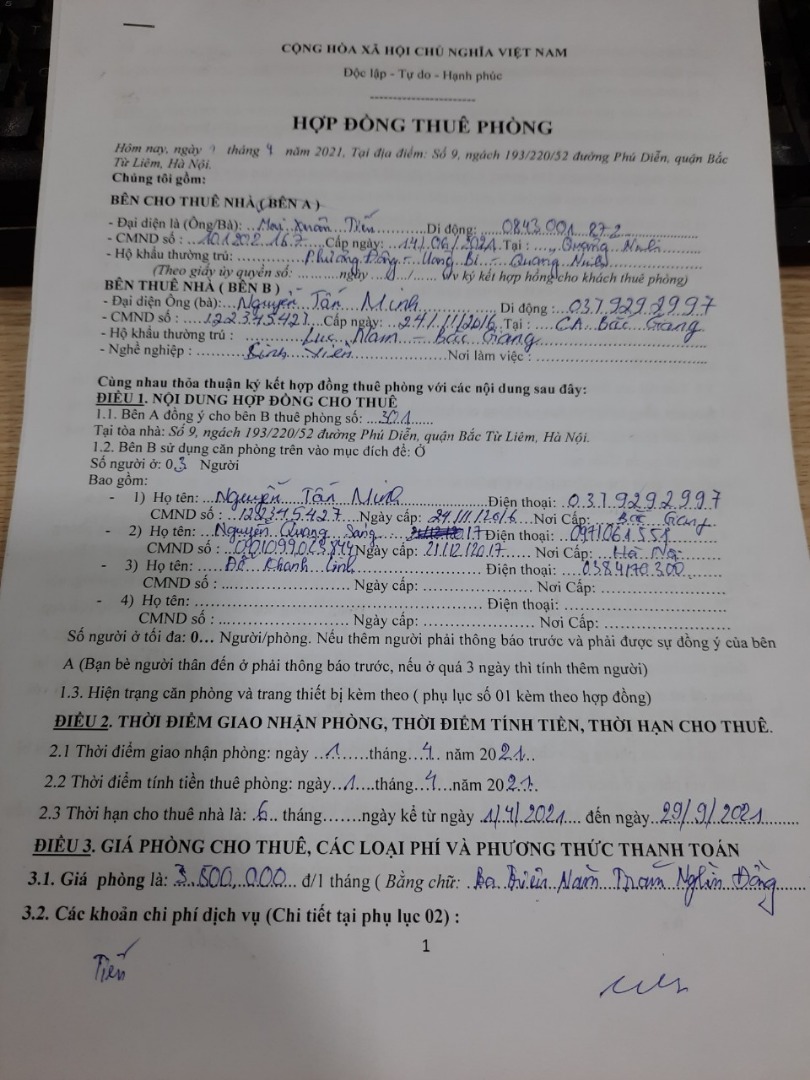 CỘNG HÒA XÃ HỘI CHỦ NGHĨA VIỆT NAM
Độc lập - Tự do - Hạnh phúc
HỢP ĐỒNG THUÊ PHÒNG
Hôm nay, ngày tháng 4 năm 2021, Tại địa điểm: Số 9, ngách 193/220/52 đường Phú Diễn, quận Bắc
Từ Liêm, Hà Nội.
Chúng tôi gồm:
BÊN CHO THUÊ NHÀ ( BÊN A )
- Đại diện là (Ông/Bà): Mai Xuân Tiến Di động: 0843.001.872
- CMND số : 101202167 Cấp ngày: 14/06/2021 Tại : Quảng Ninh
- Hộ khẩu thường trú: Phương Đông - Uông Bí - Quảng Ninh
(Theo giấy ủy quyền số: ............ngày ..../...../ V/v ký kết hợp hồng cho khách thuê phòng)
BÊN THUÊ NHÀ ( BÊN B )
- Đại diện Ông (bà): Nguyễn Tấn Minh Di động : 0379292997
- CMND số : 122345427 Cấp ngày: 24/11/2016 Tại : CA Bắc Giang
- Hộ khẩu thường trú : Lục Nam - Bắc Giang
- Nghề nghiệp : Sinh viên Nơi làm việc :
Cùng nhau thỏa thuận ký kết hợp đồng thuê phòng với các nội dung sau đây:
ĐIỀU 1. NỘI DUNG HỢP ĐỒNG CHO THUÊ
1.1. Bên A đồng ý cho bên B thuê phòng số: 301
Tại tòa nhà: Số 9, ngách 193/220/52 đường Phú Diễn, quận Bắc Từ Liêm, Hà Nội.
1.2. Bên B sử dụng căn phòng trên vào mục đích để: Ở
Số người ở: 03 Người
Bao gồm:
- 1) Họ tên: Nguyễn Tấn Minh Điện thoại: 0379292997
CMND số : 122345427 Ngày cấp: 24.11.2016 Nơi Cấp: Bắc Giang
- 2) Họ tên: Nguyễn Quang Sáng Điện thoại: 0971061551
CMND số : Ngày cấp: 21/12/2017 Nơi Cấp: Hà Nội
- 3) Họ tên: Đỗ Khánh Linh Điện thoại: 0384170300
CMND số : Ngày cấp: Nơi Cấp:
- 4) Họ tên: Điện thoại:
CMND số : Ngày cấp: Nơi Cấp:
Số người ở tối đa: 0… Người/phòng. Nếu thêm người phải thông báo trước và phải được sự đồng ý của bên
A (Bạn bè người thân đến ở phải thông báo trước, nếu ở quá 3 ngày thì tính thêm người)
1.3. Hiện trạng căn phòng và trang thiết bị kèm theo ( phụ lục số 01 kèm theo hợp đồng)
ĐIỀU 2. THỜI ĐIỂM GIAO NHẬN PHÒNG, THỜI ĐIỂM TÍNH TIỀN, THỜI HẠN CHO THUÊ.
2.1 Thời điểm giao nhận phòng: ngày 1 tháng 4 năm 2021
2.2 Thời điểm tính tiền thuê phòng: ngày 1 tháng 4 năm 2021
2.3 Thời hạn cho thuê nhà là: 6 tháng.......ngày kể từ ngày 1/4/2021 đến ngày 29/9/2021
ĐIỀU 3. GIÁ PHÒNG CHO THUÊ, CÁC LOẠI PHÍ VÀ PHƯƠNG THỨC THANH TOÁN
3.1. Giá phòng là: 3.500.000 đ/1 tháng ( Bằng chữ: Ba Triệu Năm Trăm Nghìn Đồng
3.2. Các khoản chi phí dịch vụ (Chi tiết tại phụ lục 02) :
1
Tiến